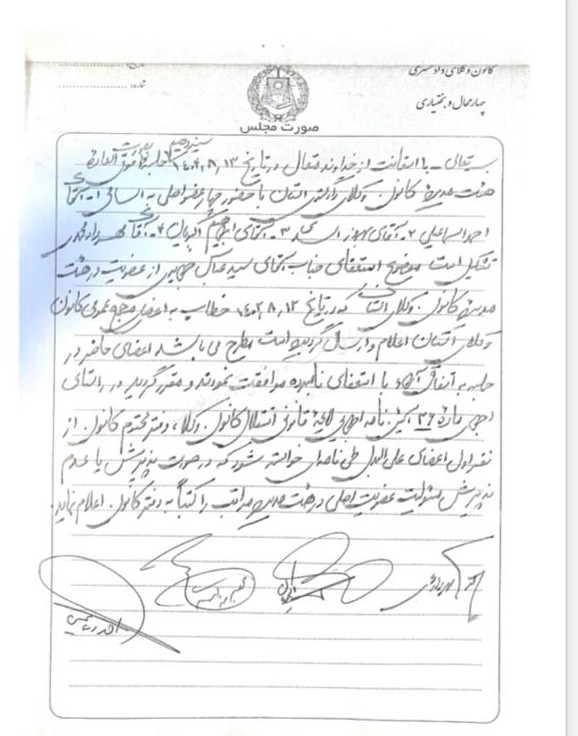 کانون وکلای دادگستری
چهارمحال و بختیاری
تاریخ: ................
شماره: ................
صورت مجلس
بسمه‌تعالی - با استعانت از خداوند متعال در تاریخ ۱۴۰۲,۸,۱۳ جلسه فوق العاده
هیئت مدیره کانون وکلای دادگستری استان با حضور چهار عضو اصلی به اسامی ۱- آقای
احمد اسماعیلی ۲- آقای بهروز ۳- آقای ابراهیم ۴- آقای
تشکیل است موضوع استعفای جناب آقای سید عباس از عضویت در هیئت
مدیره کانون وکلای استان که در تاریخ ۱۴۰۲,۸,۱۲ خطاب به اعضای مجمع عمومی کانون
وکلای استان اعلام و ارسال گردیده است مطرح می باشد اعضای حاضر در
جلسه به اتفاق آراء با استعفای نامبرده موافقت نمودند و مقرر گردید در راستای
اجرای ماده ۳۶ آیین نامه اجرایی لایحه قانونی استقلال کانون وکلا، دفتر محترم کانون از
نفر اول اعضای علی‌البدل طی نامه‌ای خواسته شود که در صورت پذیرش یا عدم
پذیرش مسئولیت عضویت اصلی در هیئت مدیره مراتب را کتباً به دفتر کانون اعلام نماید.